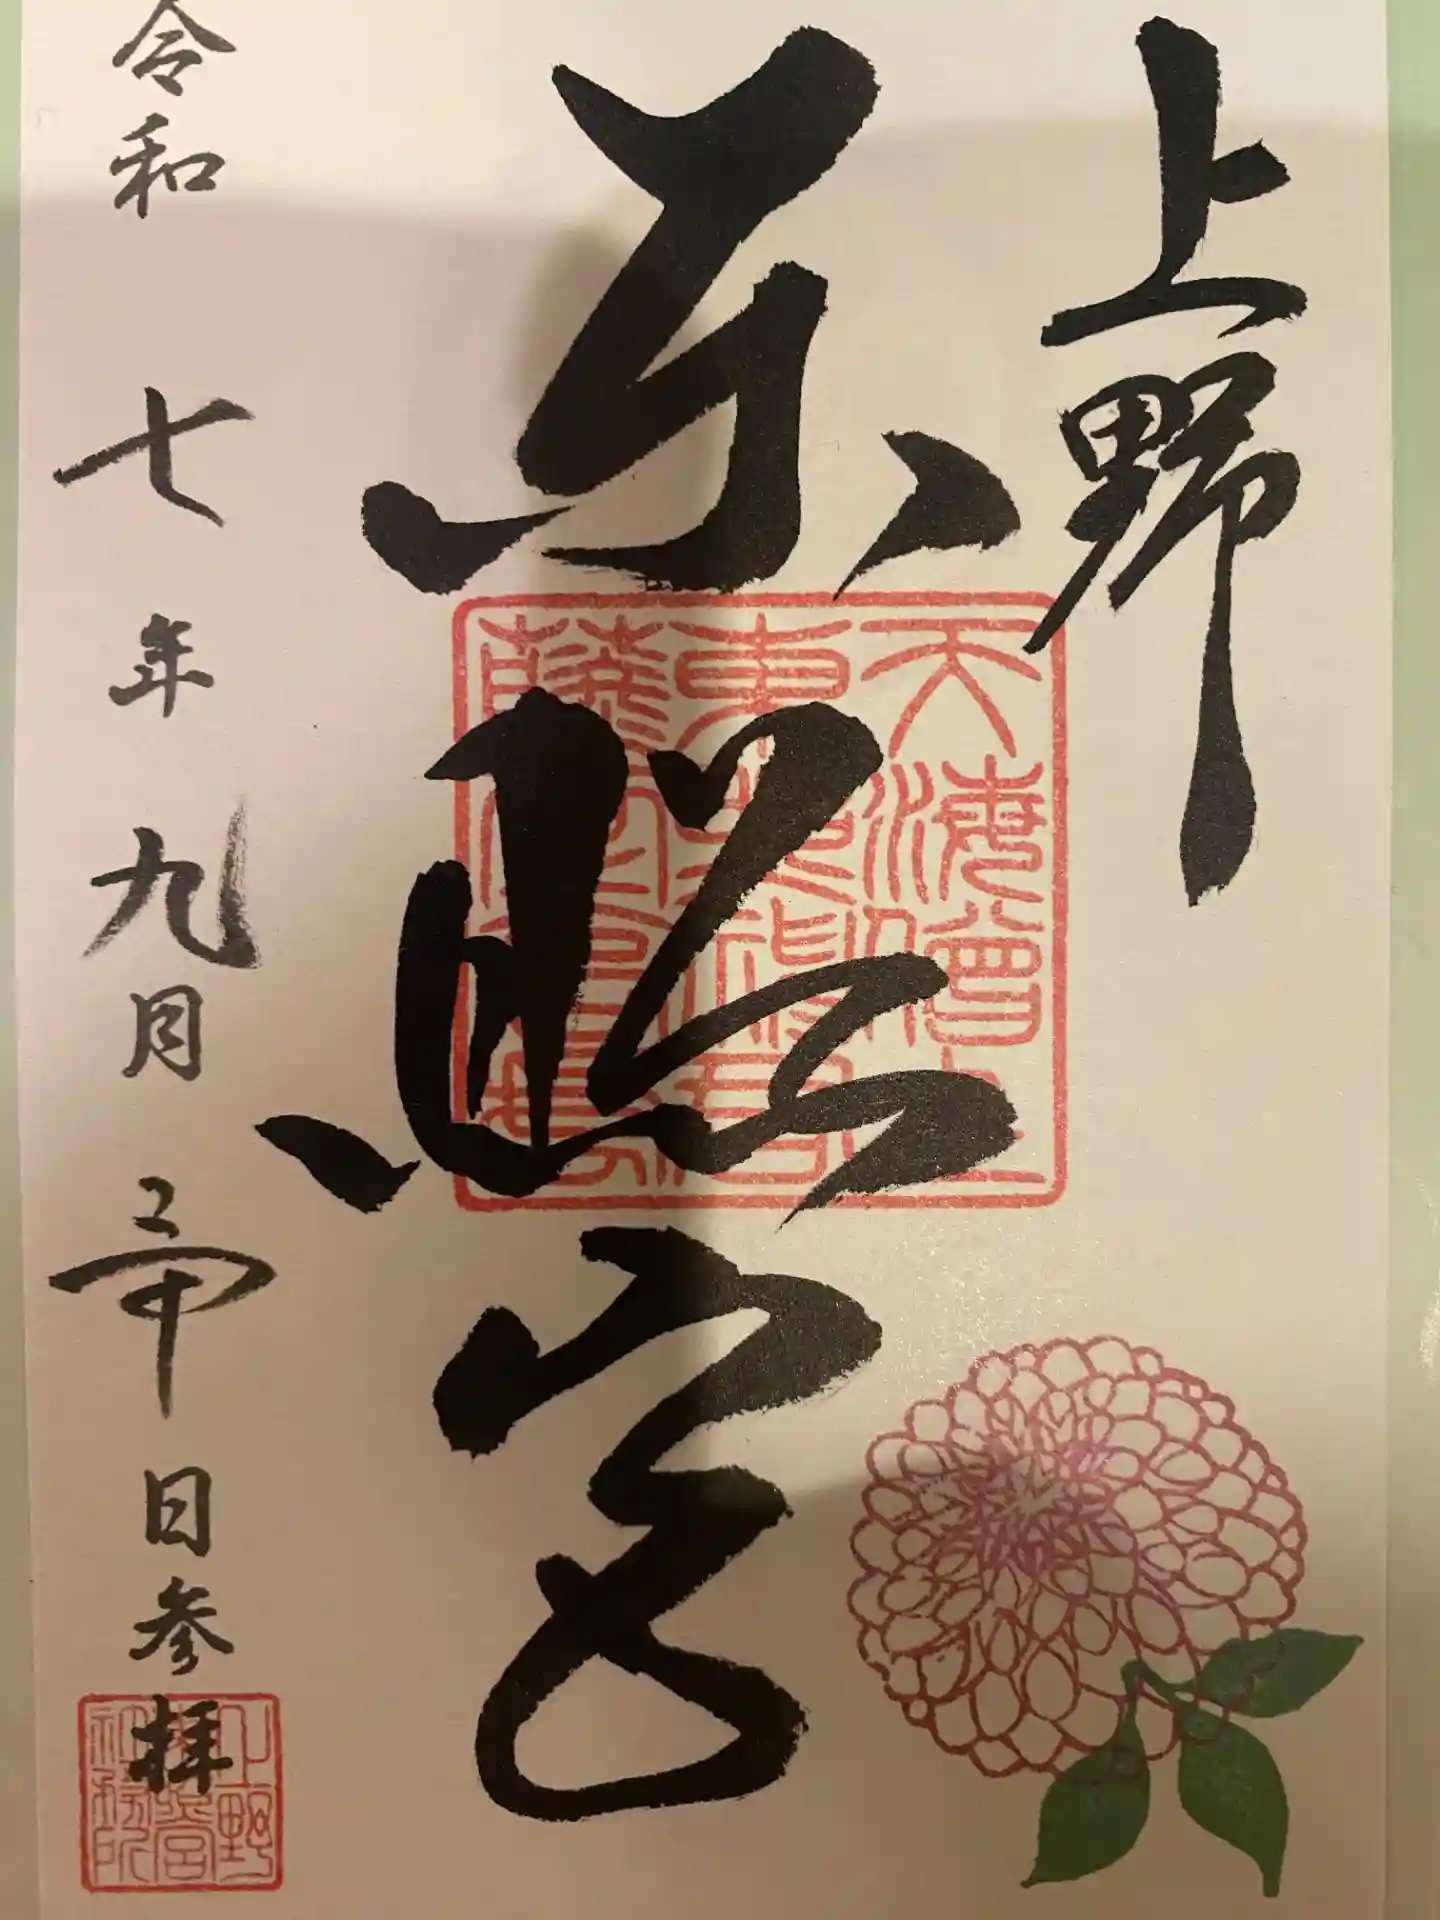 上野
東照宮
令和七年九月三十日参拝
天海僧正
東照神君
藤堂高虎
上野
東照宮
社務所